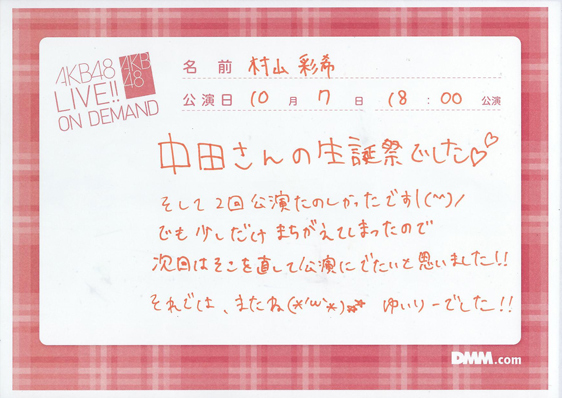 AKB48
LIVE!!
ON DEMAND
AKB
48
名前 村山 彩希
公演日 10月 7日 18:00 公演
中田さんの生誕祭でした♡♡
そして2回公演たのしかったです\(^^)/
でも少しだけまちがえてしまったので
次回はそこを直して公演にでたいと思いました!!
それでは、またね(*'ω'*)** ゆいりーでした!!
DMM.com